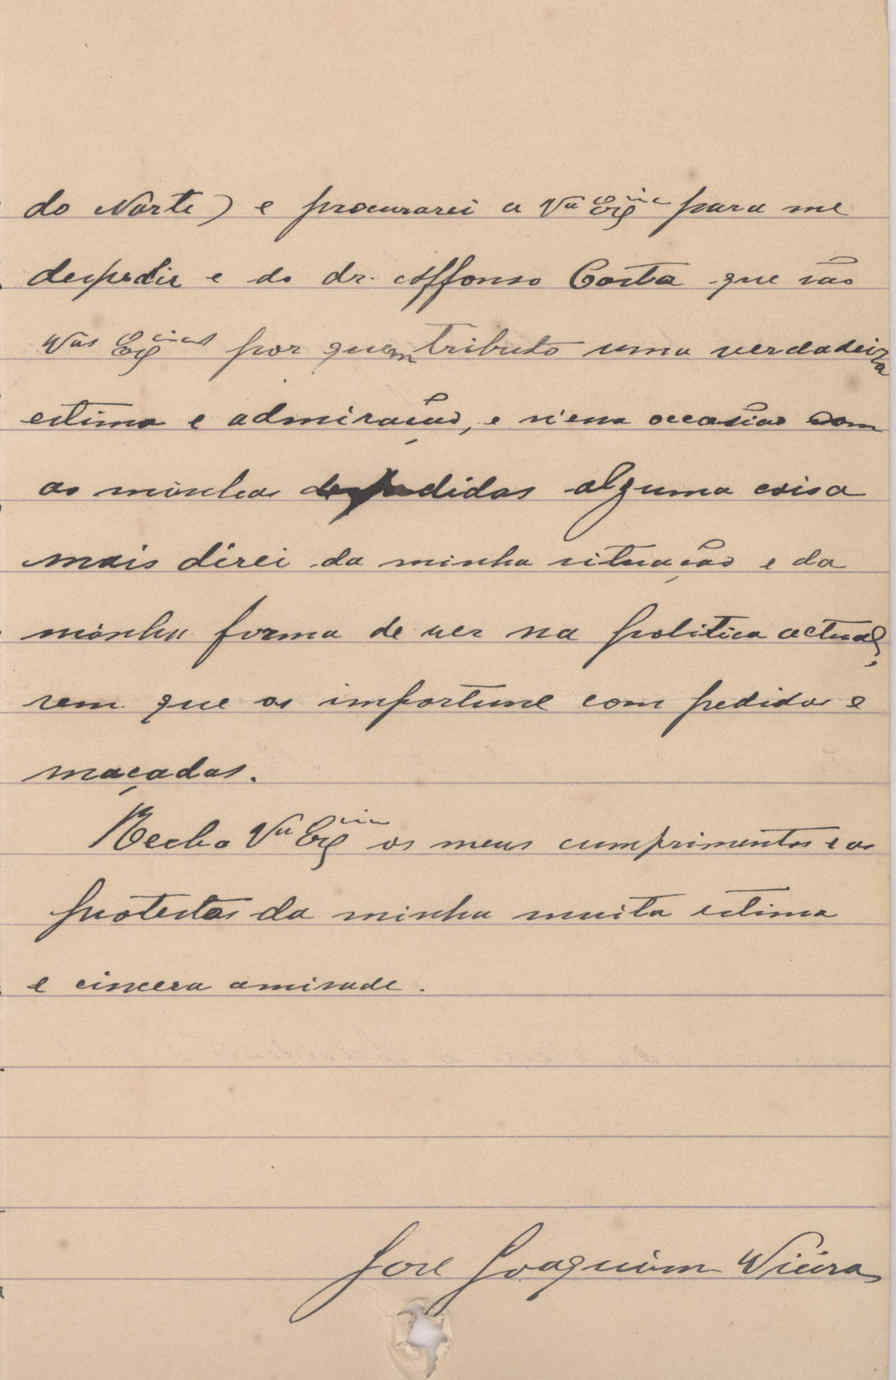 do Norte) e procurarei a Vª Exᶜⁱᵃ para me
despedir e do dr. Affonso Costa que são
Vᵃˢ Exᶜⁱᵃˢ por quem tributo uma verdadeira
estima e admiração, e n'essa occasião com
as minhas despedidas alguma coisa
mais direi da minha situação e da
minha forma de ver na politica actual,
sem que os importune com pedidos e
maçadas.
Receba Vª Exᶜⁱᵃ os meus cumprimentos e os
protestos da minha muita estima
e cincera amisade.
José Joaquim Vieira